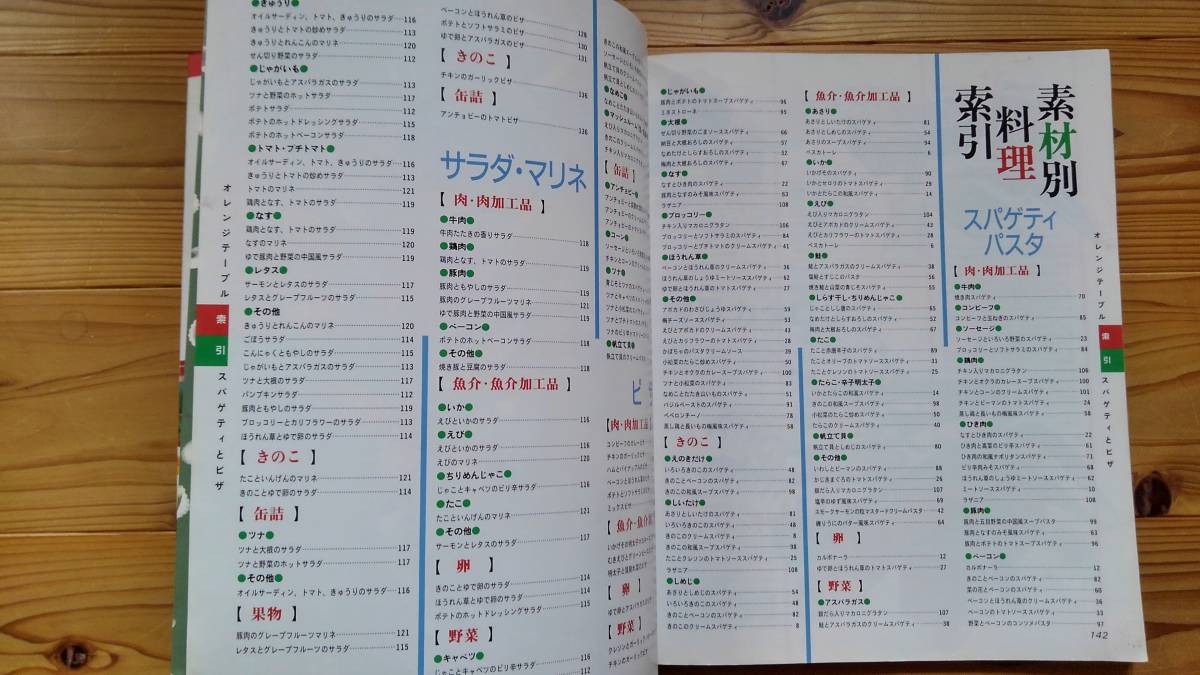 素材別
料理
索引
スパゲティ
パスタ
【肉・肉加工品】
●牛肉●
焼き肉スパゲティ 70
●コンビーフ●
コンビーフと玉ねぎのスパゲティ 85
●ソーセージ●
ソーセージといろいろ野菜のスパゲティ 23
ブロッコリーとソフトサラミのスパゲティ 84
●鶏肉●
チキン入りマカロニグラタン 106
チキンとオクラのカレースープスパゲティ 100
チキンとコーンのクリームスパゲティ 41
チキンとピーマンのトマトスパゲティ 24
蒸し鶏と長いもの梅風味スパゲティ
●ひき肉●
なすとひき肉のスパゲティ 22
ひき肉と高菜のピリ辛スパゲティ
ひき肉の和風ナポリタンスパゲティ
ピリ辛肉みそスパゲティ
ほうれん草のしょうゆミートソーススパゲティ 62
ミートソーススパゲティ 10
ラザニア 108
●豚肉●
豚肉と五目野菜の中国風スープパスタ 99
豚肉となすのみそ風味スパゲティ 63
豚肉とポテトのトマトスープスパゲティ 96
●ベーコン●
カルボナーラ 12
きのことベーコンのスパゲティ 82
菜の花とベーコンのスパゲティ
ベーコンとほうれん草のクリームスパゲティ 36
ベーコンのトマトソーススパゲティ 33
野菜とベーコンのコンソメパスタ 97
142
オレンジテーブル
索
引
スパゲティとピザ
【魚介・魚介加工品】
●あさり●
あさりとしいたけのスパゲティ 81
あさりとしめじのスパゲティ 54
あさりのスープスパゲティ 94
ペスカトーレ 6
●いか●
いかげそのスパゲティ 90
いかとセロリのトマトスパゲティ 29
いかとたらこの和風スパゲティ 14
●えび●
えび入りマカロニグラタン 104
えびとアボカドのクリームスパゲティ 43
えびとカリフラワーのトマトスパゲティ 28
ペスカトーレ 6
●鮭●
鮭とアスパラガスのクリームスパゲティ 38
塩鮭とすじこのパスタ
焼き鮭と山菜の青じそスパゲティ 55
●しらす干し・ちりめんじゃこ●
じゃことしし唐のスパゲティ 65
なめたけとしらすおろしのスパゲティ 52
梅肉と大根おろしのスパゲティ 67
●たこ●
たこと赤唐辛子のスパゲティ
たことオリーブのトマトソーススパゲティ
たことクレソンのトマトソーススパゲティ 25
●たらこ・辛子明太子●
いかとたらこの和風スパゲティ 14
きのこの和風スープスパゲティ 98
小松菜のたらこ炒めスパゲティ
たらこのクリームスパゲティ
●帆立て貝●
帆立て貝としめじのスパゲティ 80
●その他●
いわしとピーマンのスパゲティ
かじきまぐろのトマトスパゲティ 26
銀だら入りマカロニグラタン 107
塩辛のゆず風味スパゲティ 69
スモークサーモンの粒マスタードクリームパスタ 42
練りうにのバター風味スパゲティ 64
【卵】
カルボナーラ 12
ゆで卵とほうれん草のトマトスパゲティ 27
【野菜】
●アスパラガス●
銀だら入りマカロニグラタン 107
鮭とアスパラガスのクリームスパゲティ 38
●じゃがいも●
豚肉とポテトのトマトスープスパゲティ 96
ミネストローネ 95
●大根●
せん切り野菜のごまソーススパゲティ 66
納豆と大根おろしのスパゲティ 57
なめたけとしらすおろしのスパゲティ 52
梅肉と大根おろしのスパゲティ 67
●なす●
なすとひき肉のスパゲティ 22
豚肉となすのみそ風味スパゲティ 63
ラザニア 108
●ブロッコリー●
チキン入りマカロニグラタン 106
ブロッコリーとソフトサラミのスパゲティ 84
ブロッコリーとプチトマトのクリームスパゲティ 41
●ほうれん草●
ベーコンとほうれん草のクリームスパゲティ 36
ほうれん草のしょうゆミートソーススパゲティ 62
ゆで卵とほうれん草のトマトスパゲティ 27
●その他●
アボカドのわさびじょうゆスパゲティ 59
梅チーズソーススパゲティ 53
えびとアボカドのクリームスパゲティ 43
えびとカリフラワーのトマトスパゲティ 28
かぼちゃのパスタクリームソース 39
小松菜のたらこ炒めスパゲティ
チキンとオクラのカレースープスパゲティ 100
ツナと小松菜のスパゲティ
なめことたたき白いものスパゲティ
バジルペーストのスパゲティ 91
ペペロンチーノ 78
蒸し鶏と長いもの梅風味スパゲティ 58
【きのこ】
●えのきだけ●
いろいろきのこのスパゲティ 48
きのことベーコンのスパゲティ 82
きのこの和風スープスパゲティ 98
●しいたけ●
あさりとしいたけのスパゲティ 81
いろいろきのこのスパゲティ 48
きのこのクリームスパゲティ 8
きのこの和風スープスパゲティ 98
たことクレソンのトマトソーススパゲティ 25
ラザニア 108
●しめじ●
あさりとしめじのスパゲティ 54
いろいろきのこのスパゲティ 48
きのことベーコンのスパゲティ 82
きのこのクリームスパゲティ 8
●きゅうり●
オイルサーディン、トマト、きゅうりのサラダ 116
きゅうりとトマトの炒めサラダ 113
きゅうりとれんこんのマリネ 120
せん切り野菜のサラダ 112
●じゃがいも●
じゃがいもとアスパラガスのサラダ 113
ツナと野菜のホットサラダ 117
ポテトサラダ 115
ポテトのホットドレッシングサラダ 115
ポテトのホットベーコンサラダ 118
●トマト・プチトマト●
オイルサーディン、トマト、きゅうりのサラダ 116
きゅうりとトマトの炒めサラダ 113
トマトのマリネ 121
鶏肉となす、トマトのサラダ 119
●なす●
鶏肉となす、トマトのサラダ 119
なすのマリネ 120
ゆで豚肉と野菜の中国風サラダ 119
●レタス●
サーモンとレタスのサラダ 114
レタスとグレープフルーツのサラダ 115
●その他●
きゅうりとれんこんのマリネ 120
ごぼうサラダ 114
こんにゃくともやしのサラダ 115
じゃがいもとアスパラガスのサラダ 113
ツナと大根のサラダ 117
パンプキンサラダ 112
豚肉ともやしのサラダ 119
ブロッコリーとカリフラワーのサラダ 113
ほうれん草とゆで卵のサラダ 114
【きのこ】
たこといんげんのマリネ 121
きのことゆで卵のサラダ 114
【缶詰】
●ツナ●
ツナと大根のサラダ 117
ツナと野菜のホットサラダ 117
●その他●
オイルサーディン、トマト、きゅうりのサラダ 116
【果物】
豚肉のグレープフルーツマリネ 121
レタスとグレープフルーツのサラダ 115
オレンジテーブル
索
引
スパゲティとピザ
ベーコンとほうれん草のピザ
ポテトとソフトサラミのピザ 128
ゆで卵とアスパラガスのピザ 130
【きのこ】 131
チキンのガーリックピザ
【缶詰】 131
アンチョビーのトマトピザ
126
サラダ・マリネ
【肉・肉加工品】
●牛肉●
牛肉たたきの香りサラダ 118
●鶏肉●
鶏肉となす、トマトのサラダ 119
●豚肉●
豚肉ともやしのサラダ 119
豚肉のグレープフルーツマリネ 121
ゆで豚肉と野菜の中国風サラダ 119
●ベーコン●
ポテトのホットベーコンサラダ 118
●その他●
焼き豚と豆腐のサラダ 118
【魚介・魚介加工品】
●いか●
えびといかのサラダ
●えび●
えびといかのサラダ
えびのマリネ 120
●ちりめんじゃこ●
じゃことキャベツのピリ辛サラダ 112
●たこ●
たこといんげんのマリネ 121
●その他●
サーモンとレタスのサラダ 114
【卵】
きのことゆで卵のサラダ 114
ほうれん草とゆで卵のサラダ 114
ポテトのホットドレッシングサラダ 115
【野菜】
●キャベツ●
じゃことキャベツのピリ辛サラダ 112
●なめこ●
【缶詰】
●アンチョビー●
●コーン●
●ツナ●
●帆立て貝●
【肉・肉加工品】
【卵】
【野菜】